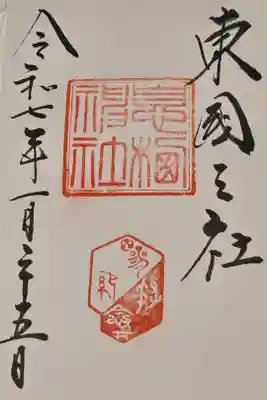 東國三社
息栖
神社
令和七年一月二十五日